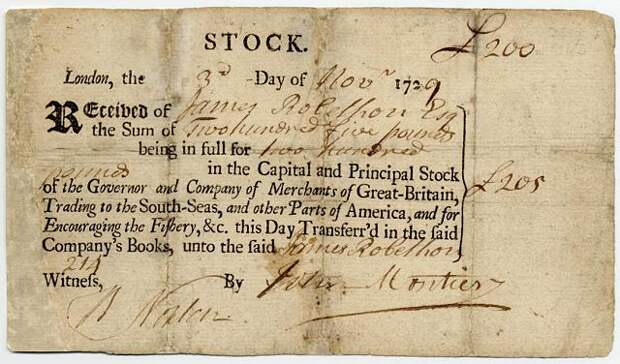 STOCK.
£200
London, the 3d Day of Novr 1729
Received of James Robethon Esq
the Sum of Two hundred five pounds
being in full for two hundred
pounds in the Capital and Principal Stock
of the Governor and Company of Merchants of Great-Britain,
£205
Trading to the South-Seas, and other Parts of America, and for
Encouraging the Fishery, &c. this Day Transferr'd in the said
Company's Books, unto the said James Robethon,
214
Witness, By John Montier